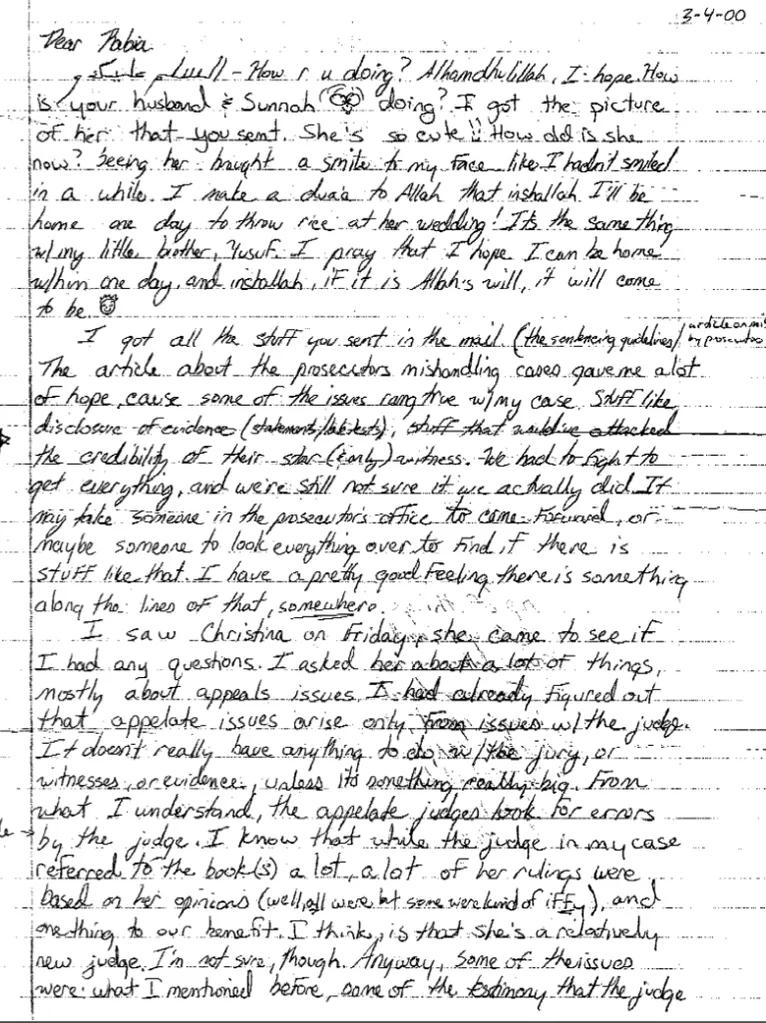 3-4-00
Dear Rabia
السلام عليكم - How r u doing? Alhamdhulillah, I hope. How
is your husband & Sunnah doing? I got the picture
of her that you sent. She's so cute!! How old is she
now? Seeing her brought a smile to my face like I hadn't smiled
in a while. I make a dua'a to Allah that inshallah I'll be
home one day to throw rice at her wedding! Its the same thing
w/my little brother, Yusuf. I pray that I hope I can be home
w/him one day, and inshallah, if it is Allah's will, it will come
to be.
I got all the stuff you sent in the mail. (the sentencing guidelines/ article on mis by prosecutor
The article about the prosecutors mishandling cases gave me a lot
of hope, cause some of the issues rang true w/my case. Stuff like
disclosure of evidence (statements/lab tests), stuff that would've attacked
the credibility of their star (& only) witness. We had to fight to
get everything, and we're still not sure if we actually did. It
may take someone in the prosecutor's office to come forward, or
maybe someone to look everything over to find if there is
stuff like that. I have a pretty good feeling there is something
along the lines of that, somewhere.
I saw Christina on Friday, she came to see if
I had any questions. I asked her about a lot of things,
mostly about appeals issues. I had already figured out
that appelate issues arise only from issues w/the judge.
It doesn't really have anything to do w/the jury, or
witnesses, or evidence, unless its something really big. From
what I understand, the appelate judges look for errors
by the judge. I know that while the judge in my case
referred to the book(s) a lot, a lot of her rulings were
based on her opinions (well, all were but some were kind of iffy), and
one thing to our benefit, I think, is that she's a relatively
new judge. I'm not sure, though. Anyway, some of the issues
were what I mentioned before, some of the testimony that the judge